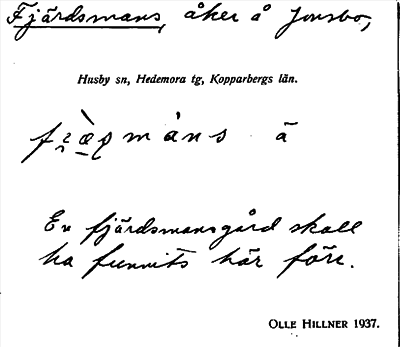 Fjärdsmans, åker å Jonsbo,
Husby sn, Hedemora tg, Kopparbergs län.
måns å
En fjärdsmansgård skall
ha funnits här förr.
OLLE HILLNER 1937.